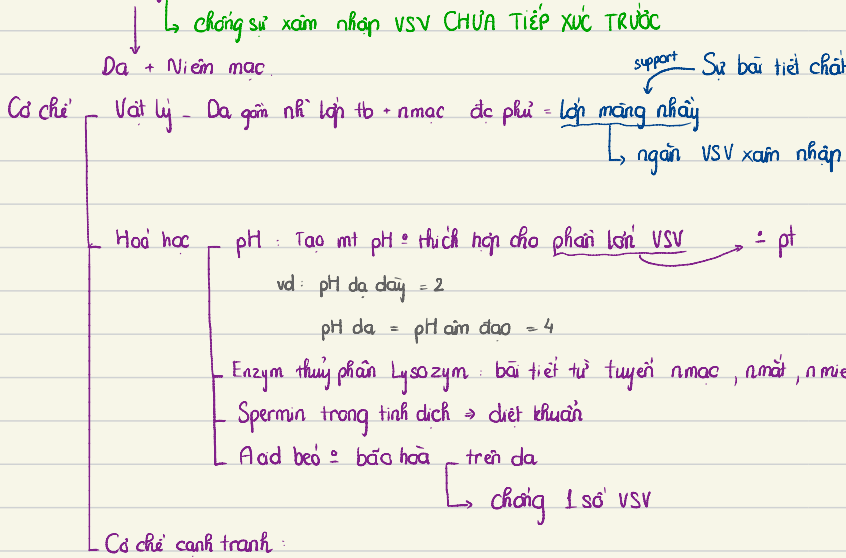 chống sự xâm nhập VSV CHƯA TIẾP XÚC TRƯỚC
Da + Niêm mạc
support Sự bài tiết chất
Cơ chế Vật lý - Da gồm nhì lớp tb + nmạc đc phủ = lớp màng nhầy
ngăn VSV xâm nhập
Hoá học pH : Tạo mt pH ÷ thích hợp cho phần lớn VSV ÷ pt
vd: pH dạ dày = 2
pH da = pH âm đạo = 4
Enzym thuỷ phân Lysozym : bài tiết từ tuyến nmạc , nmắt , n miệ
Spermin trong tinh dịch → diệt khuẩn
Acid béo ÷ bão hoà trên da
chống 1 số VSV
Cơ chế cạnh tranh :